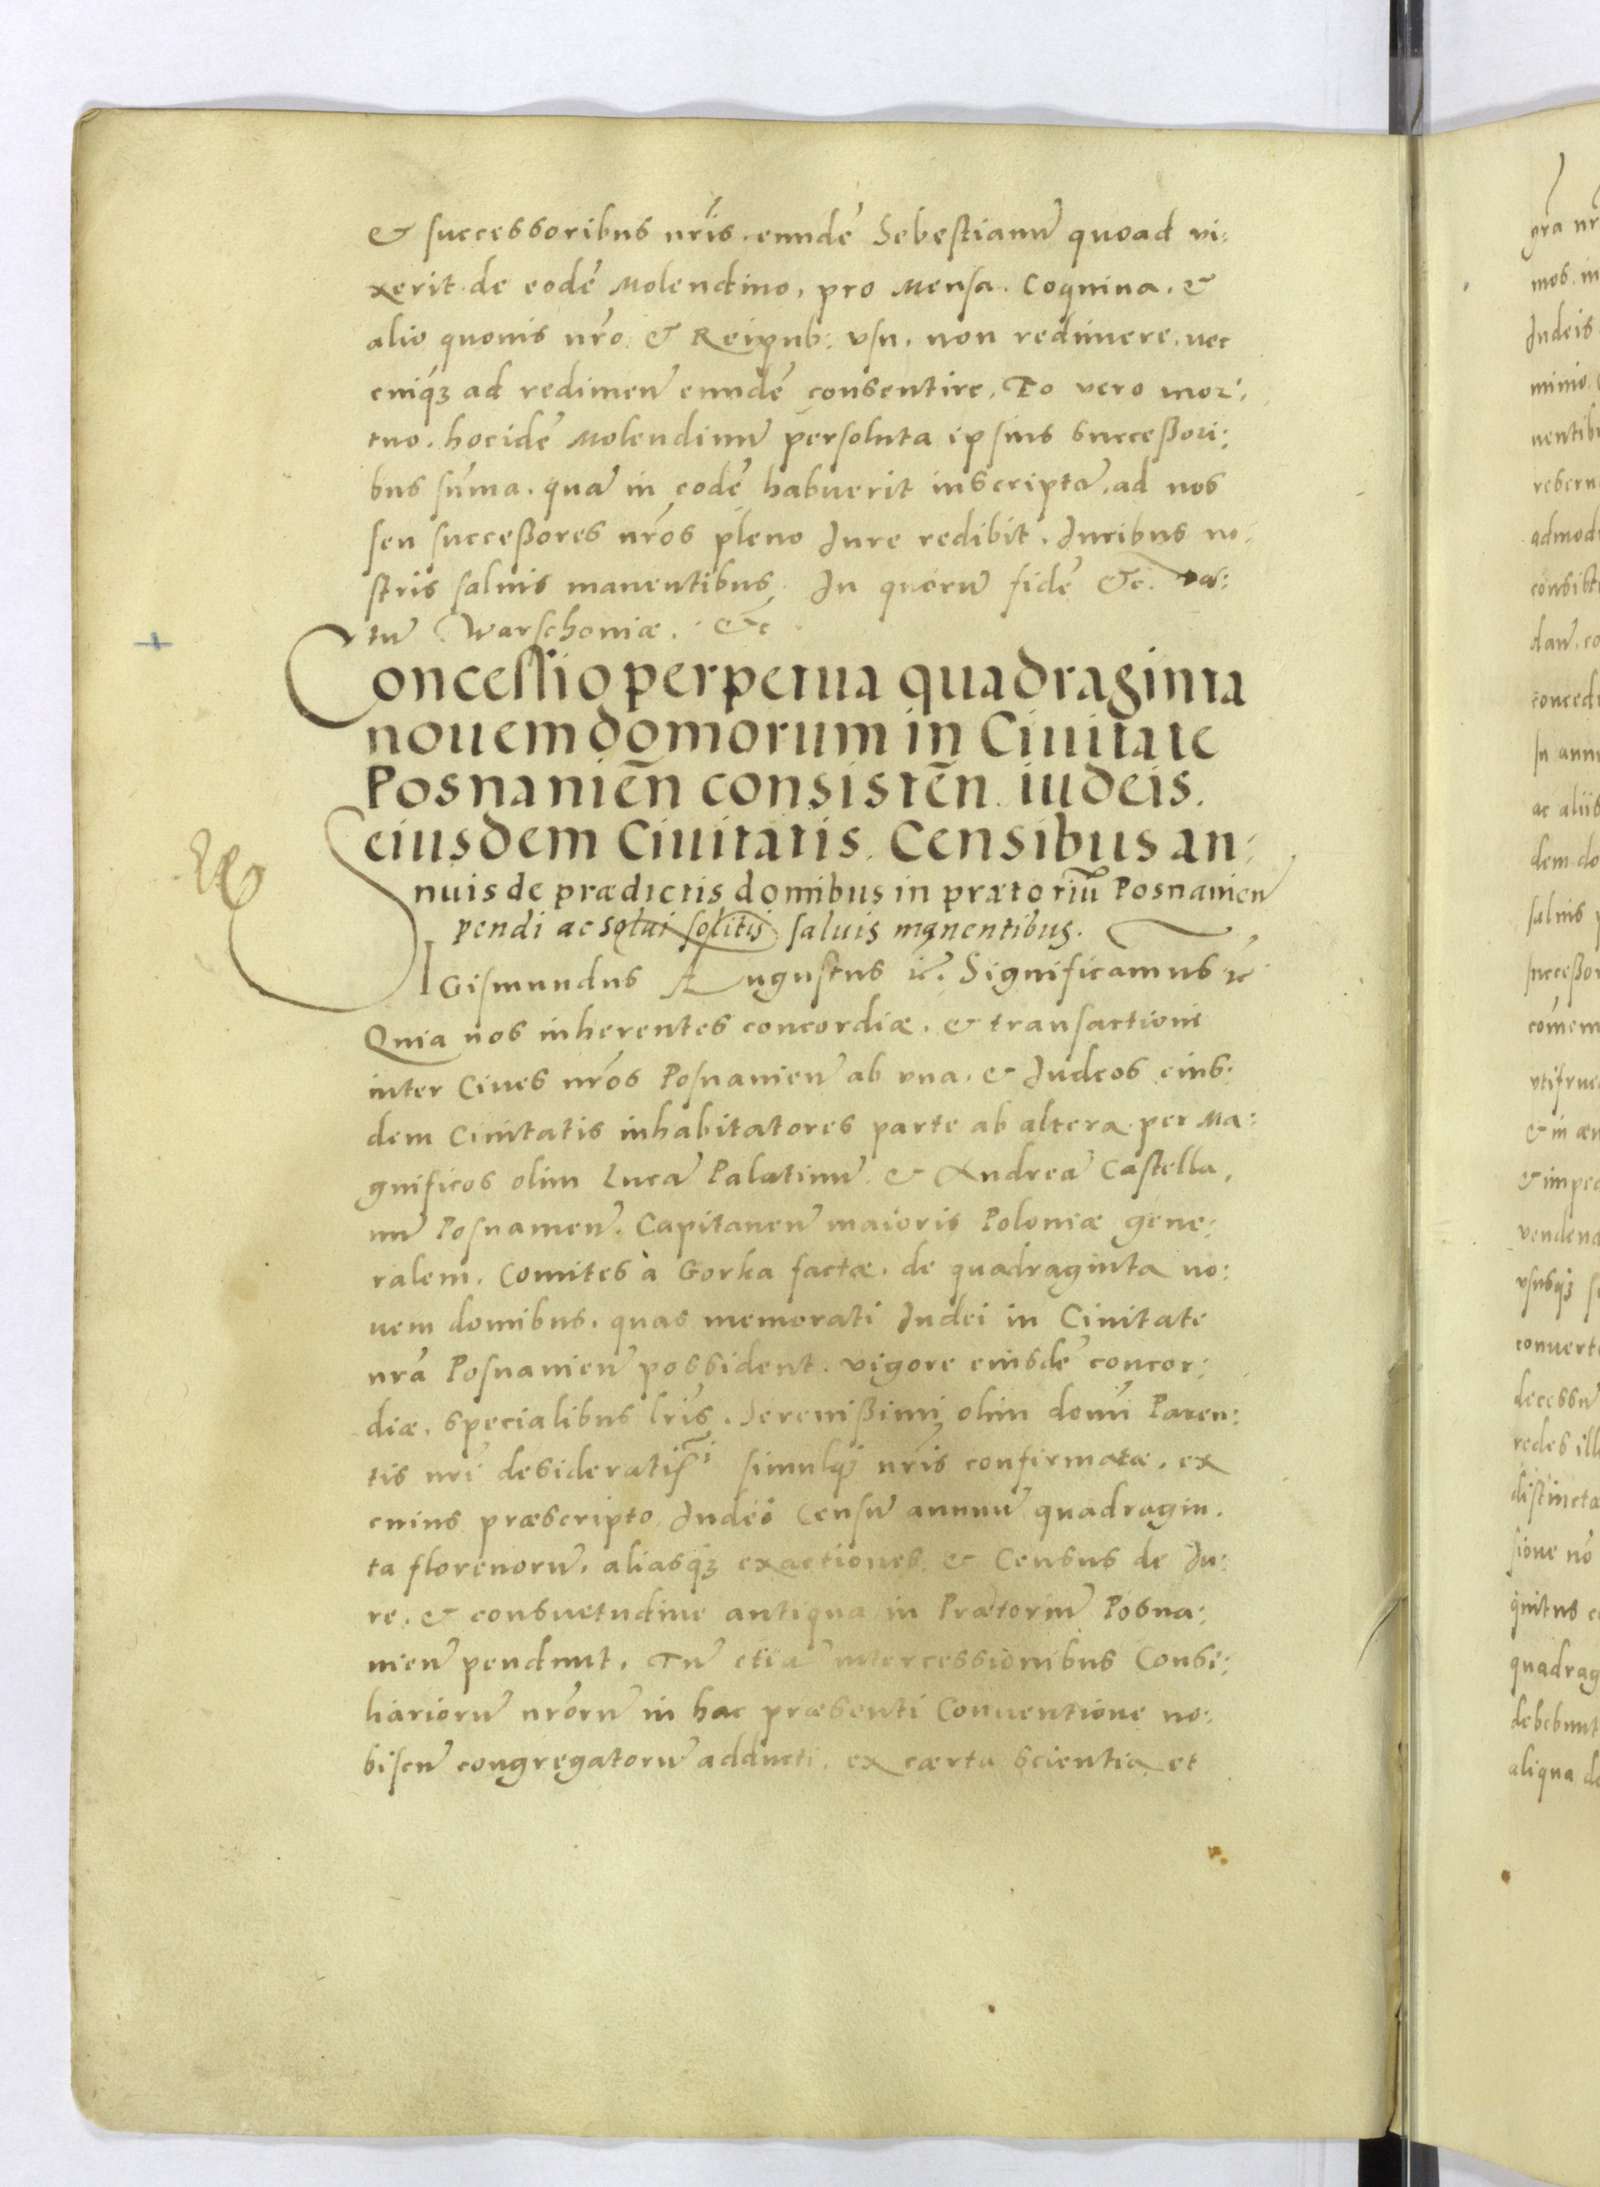 & successoribus nr̃is. eundẽ Sebestianũ quoad vi:
xerit de eodẽ Molendino, pro Mensa. Coquina. &
alio quouis nr̃o & Reipub: vsu. non redimere, nec
cuiq́ꝫ ad redimen̄ eundẽ consentire. Eo vero mor:
tuo. hocidẽ Molendinũ persoluta ipsius successori:
bus sum̃a. quã in eodẽ habuerit inscriptã. ad nos
seu successores nr̃os pleno Jure redibit. Juribus no:
stris saluis manentibus. In quorũ fidẽ &c. Da:
tũ Warschouiæ. &c
Concessio perpetua quadraginta
nouem domorum in Ciuitate
Posnanien̄ consisten̄. iudeis.
eiusdem Ciuitatis. Censibus an:
nuis de prædictis domibus in prætoriũ Posnanien̄
pendi ac solui solitis saluis manentibus.
SIGismundus Augustus ꝛc̃. Significamus ꝛc
Quia nos inherentes concordiæ. & transactioni
inter Ciues nr̃os Posnanien̄ ab vna. & Judeos eius:
dem Ciuitatis inhabitatores parte ab altera per Ma:
gnificos olim Lucã Palatinũ & Andreã Castella,
nũ Posnanien̄. Capitaneũ maioris Poloniæ gene:
ralem. Comites à Gorka factæ. de quadraginta no:
uem domibus. quas memorati Judei in Ciuitate
nr̃a Posnanien̄ possident. vigore eiusdẽ concor:
diæ. specialibus lr̃is. Serenissimi olim domĩ Paren:
tis nr̃i desideratiss̃i simulq̃ nr̃is confirmatæ. ex
cuius præscripto Judei Censũ annuũ quadragin,
ta florenorũ. aliasq́ꝫ exactiones & Census de Ju:
re. & consuetudine antiqua in Prætoriũ Posna:
nien̄ pendunt. Tũ etiã intercessionibus Consi:
liariorũ nr̃orũ in hac præsenti Conuentione no:
biscũ congregatorũ adducti. ex cærta scientia et